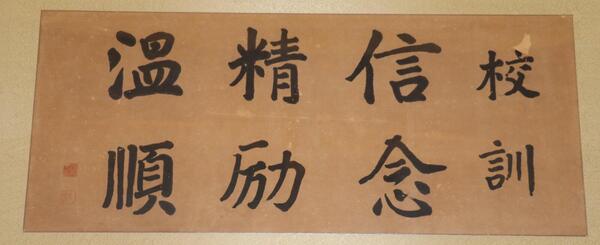 校訓
信念
精励
温順